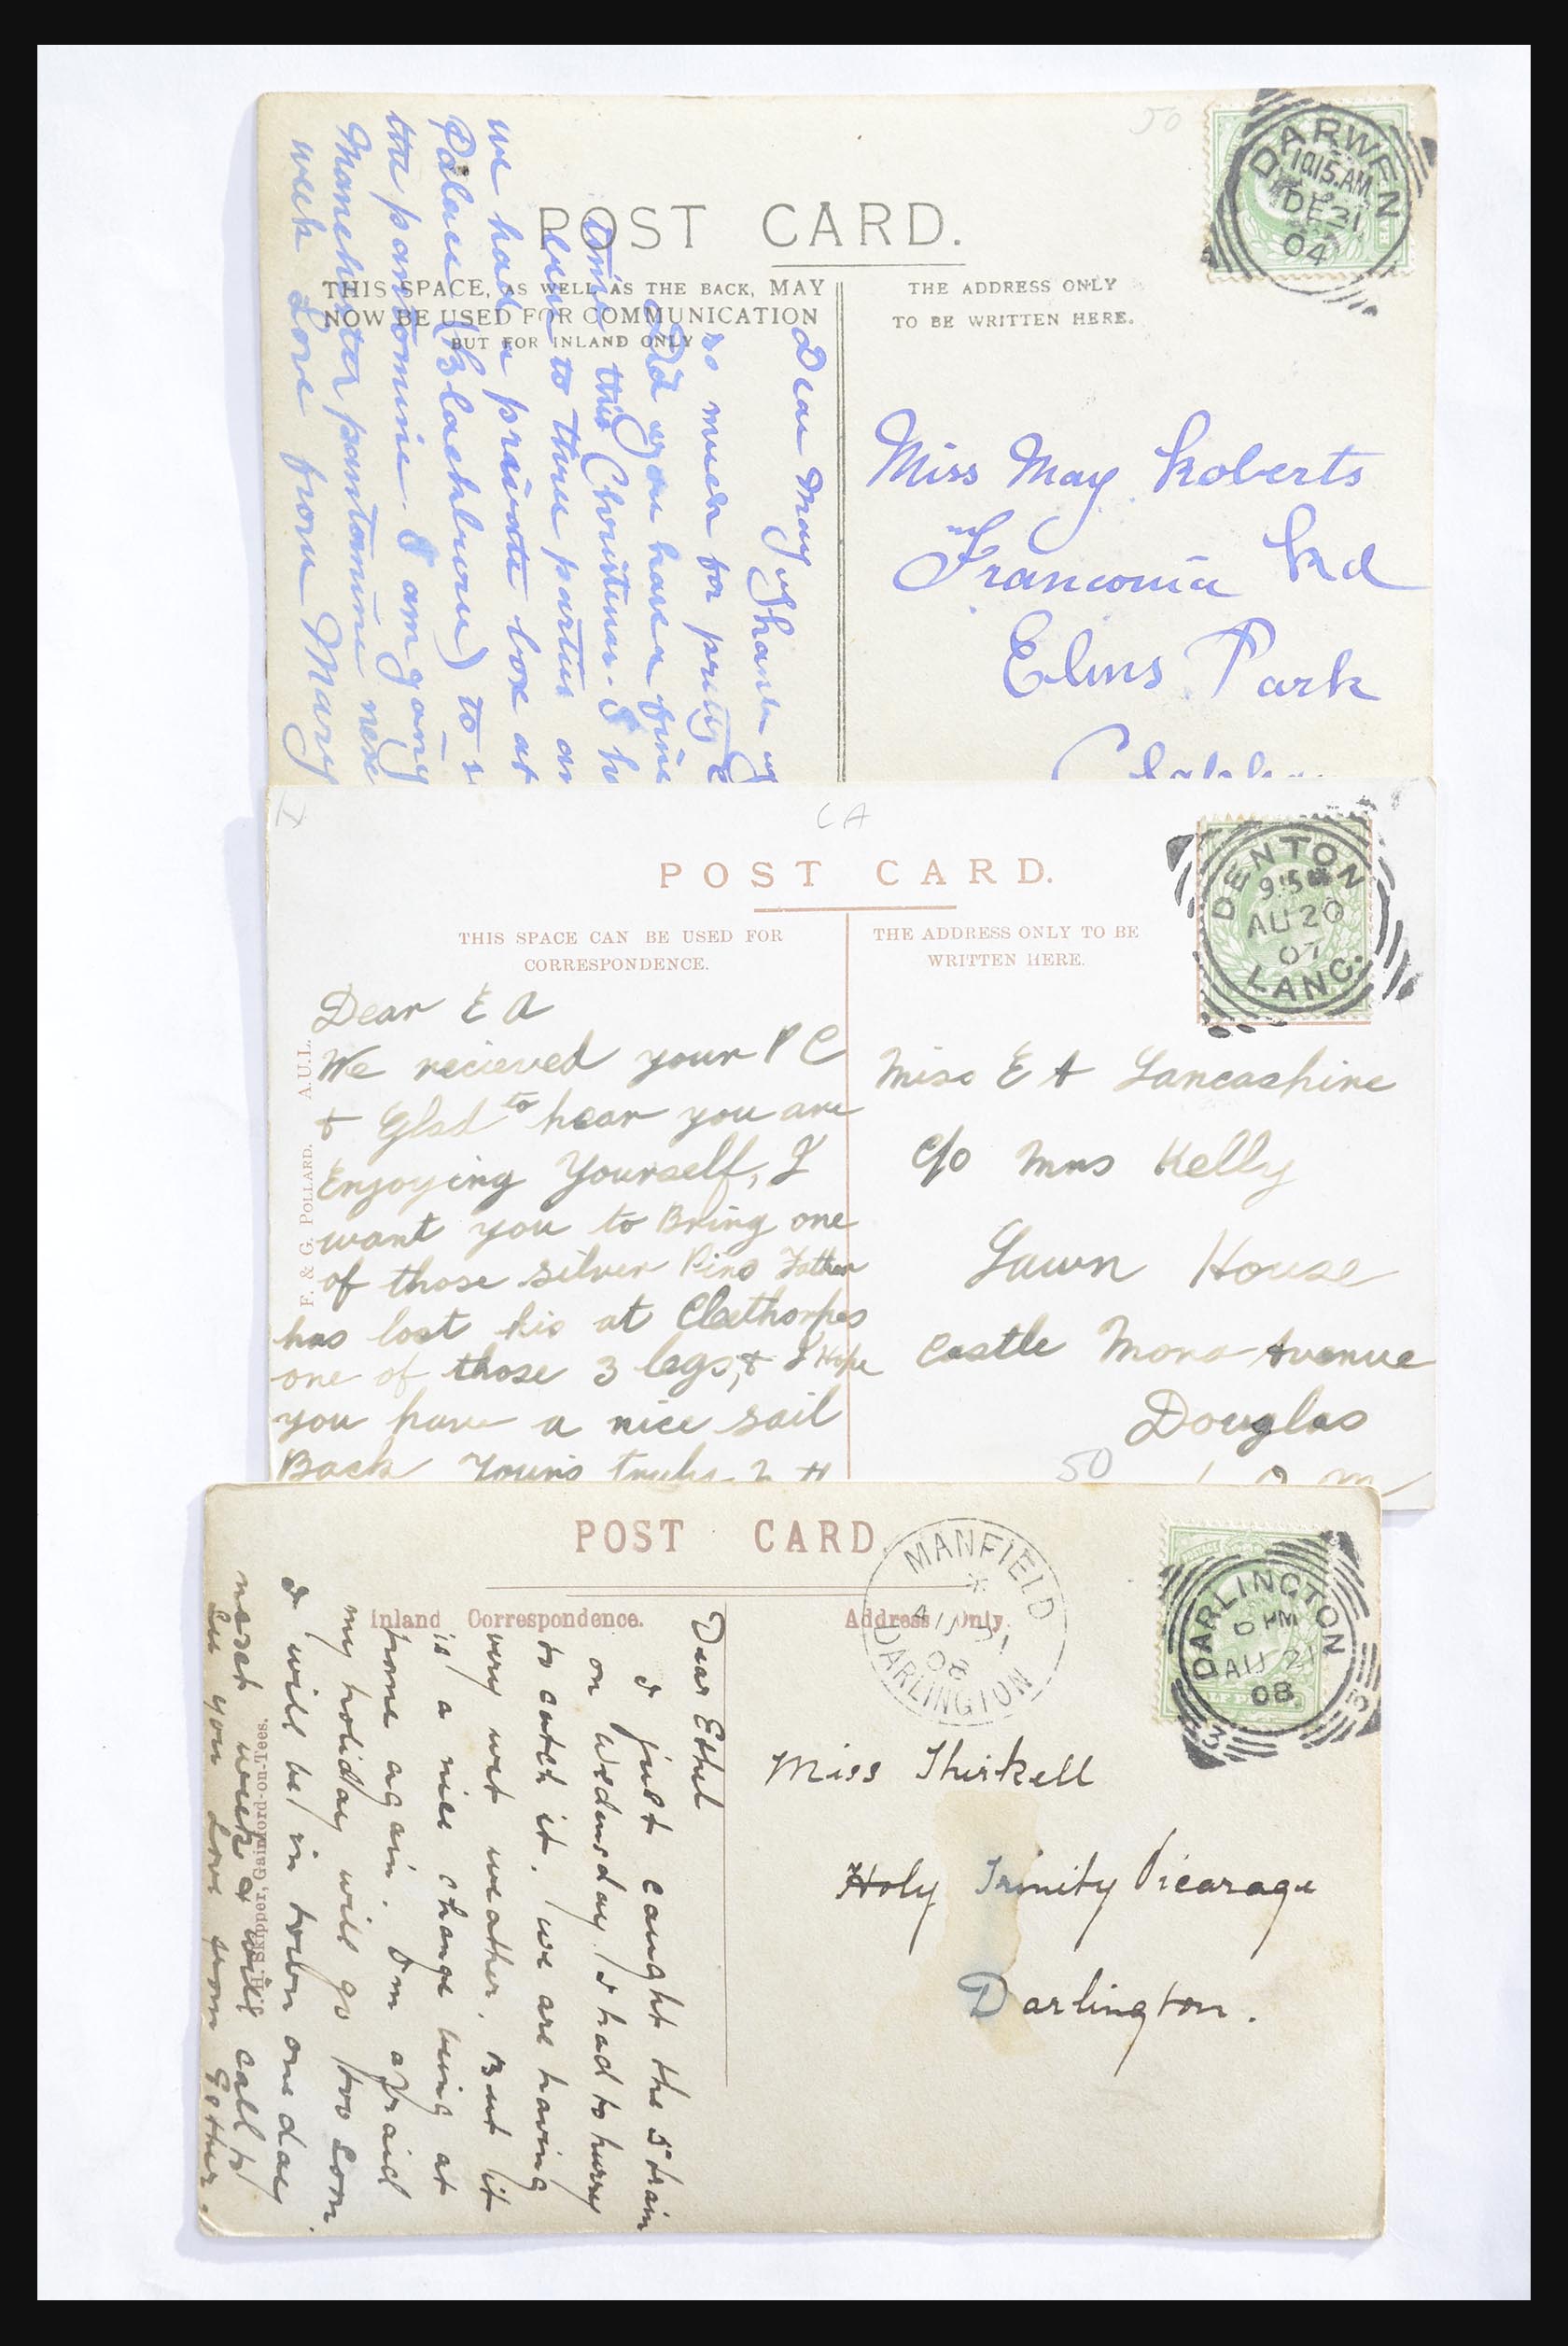 50
DARWEN
10.15.AM
DE 31
04
POST CARD.
THIS SPACE, AS WELL AS THE BACK, MAY
NOW BE USED FOR COMMUNICATION
BUT FOR INLAND ONLY
THE ADDRESS ONLY
TO BE WRITTEN HERE.
Dear May
Thank
so much for pretty
Did you have a fine
time this Christmas. I
been to three parties
we had a private box at
Palace (Blackburn) to
the pantomine. I am going
Manchester pantomine next
week Love from Mary
Miss May Roberts
Franconia Rd
Elms Park
CA
POST CARD.
THIS SPACE CAN BE USED FOR
CORRESPONDENCE.
THE ADDRESS ONLY TO BE
WRITTEN HERE.
DENTON
AU 20
07
LANC.
F. & G. POLLARD. A.U.L.
Dear E A
We recieved your P C
& Glad to hear you are
Enjoying Yourself, I
want you to Bring one
of those silver Pins Father
has lost his at Cleethorpes
one of those 3 legs, & I Hope
you have a nice sail
Back Yours truly
Miss E A Lancashire
c/o Mrs Kelly
Lawn House
Castle Mona Avenue
Douglas
I O M
50
POST CARD.
Inland Correspondence.
Address Only.
MANFIELD
08
DARLINGTON
DARLINGTON
6 PM
AU 21
08
3 3
Skipper, Gainford-on-Tees.
Dear Ethel
I just caught the 5 train
on Wednesday. I had to hurry
to catch it. We are having
very wet weather. But it
is a nice change being at
home again. I'm afraid
my holiday will go too soon.
I will be in town one day
next week & will call to
see you Love from Esther.
Miss Thirkell
Holy Trinity Vicarage
Darlington.